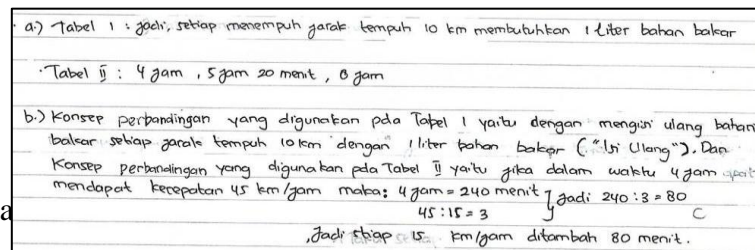 a.) Tabel 1 : jadi, setiap menempuh jarak tempuh 10 km membutuhkan 1 liter bahan bakar
· Tabel II : 4 jam , 5 jam 20 menit , 8 jam
b.) Konsep perbandingan yang digunakan pda Tabel 1 yaitu dengan mengisi ulang bahan
bakar setiap jarak tempuh 10 km dengan 1 liter bahan bakar ("Isi Ulang"). Dan
Konsep perbandingan yang digunakan pda Tabel II yaitu jika dalam waktu 4 jam
mendapat kecepatan 45 km/jam maka: 4 jam = 240 menit } jadi 240 : 3 = 80
a
45 : 15 = 3
C
, Jadi stiap 15 km/jam ditambah 80 menit.